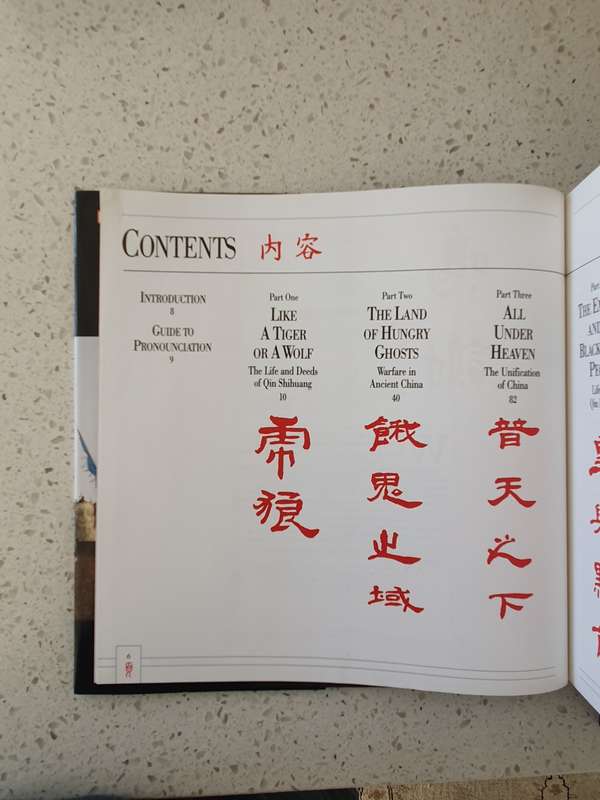 CONTENTS 内容
INTRODUCTION
8
GUIDE TO
PRONOUNCIATION
9
Part One
LIKE
A TIGER
OR A WOLF
The Life and Deeds
of Qin Shihuang
10
虎
狼
Part Two
THE LAND
OF HUNGRY
GHOSTS
Warfare in
Ancient China
40
餓
鬼
之
域
Part Three
ALL
UNDER
HEAVEN
The Unification
of China
82
普
天
之
下
6